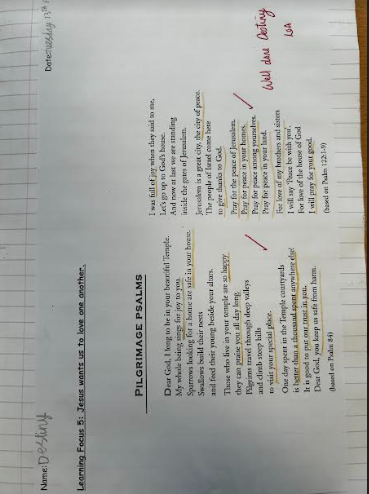 Name: Destiny
Date: Tuesday 13th
Learning Focus 5: Jesus wants us to love one another.
PILGRIMAGE PSALMS
Dear God, I long to be in your beautiful Temple.
My whole being sings for joy to you.
Sparrows looking for a home are safe in your house.
Swallows build their nests
and feed their young beside your altars.
Those who live in your temple are so happy
they can praise you all day long.
Pilgrims travel through deep valleys
and climb steep hills
to visit your special place.
One day spent in the Temple courtyards
is better than a thousand spent anywhere else!
It is good to put our trust in you.
Dear God, you keep us safe from harm.
(based on Psalm 84)
I was full of joy when they said to me,
Let's go up to God's house.
And now at last we are standing
inside the gates of Jerusalem.
Jerusalem is a great city, the city of peace.
The people of Israel come here
to give thanks to God.
Pray for the peace of Jerusalem.
Pray for peace in your homes.
Pray for peace among yourselves.
Pray for peace in your land.
For love of my brothers and sisters
I will say 'Peace be with you'.
For love of the house of God
I will pray for your good.
(based on Psalm 122:1-9)
Well done Destiny